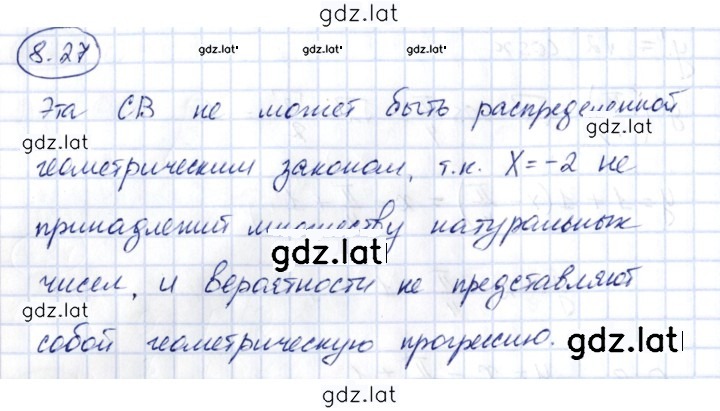 gdz.lat
8.27
gdz.lat gdz.lat gdz.lat
Эта СВ не может быть распределенной
gdz.lat gdz.lat
геометрическим законом, т.к. X = -2 не
принадлежит множеству натуральных
gdz.lat
чисел, и вероятности не представляют
gdz.lat
собой геометрическую прогрессию.
gdz.lat
gdz.lat